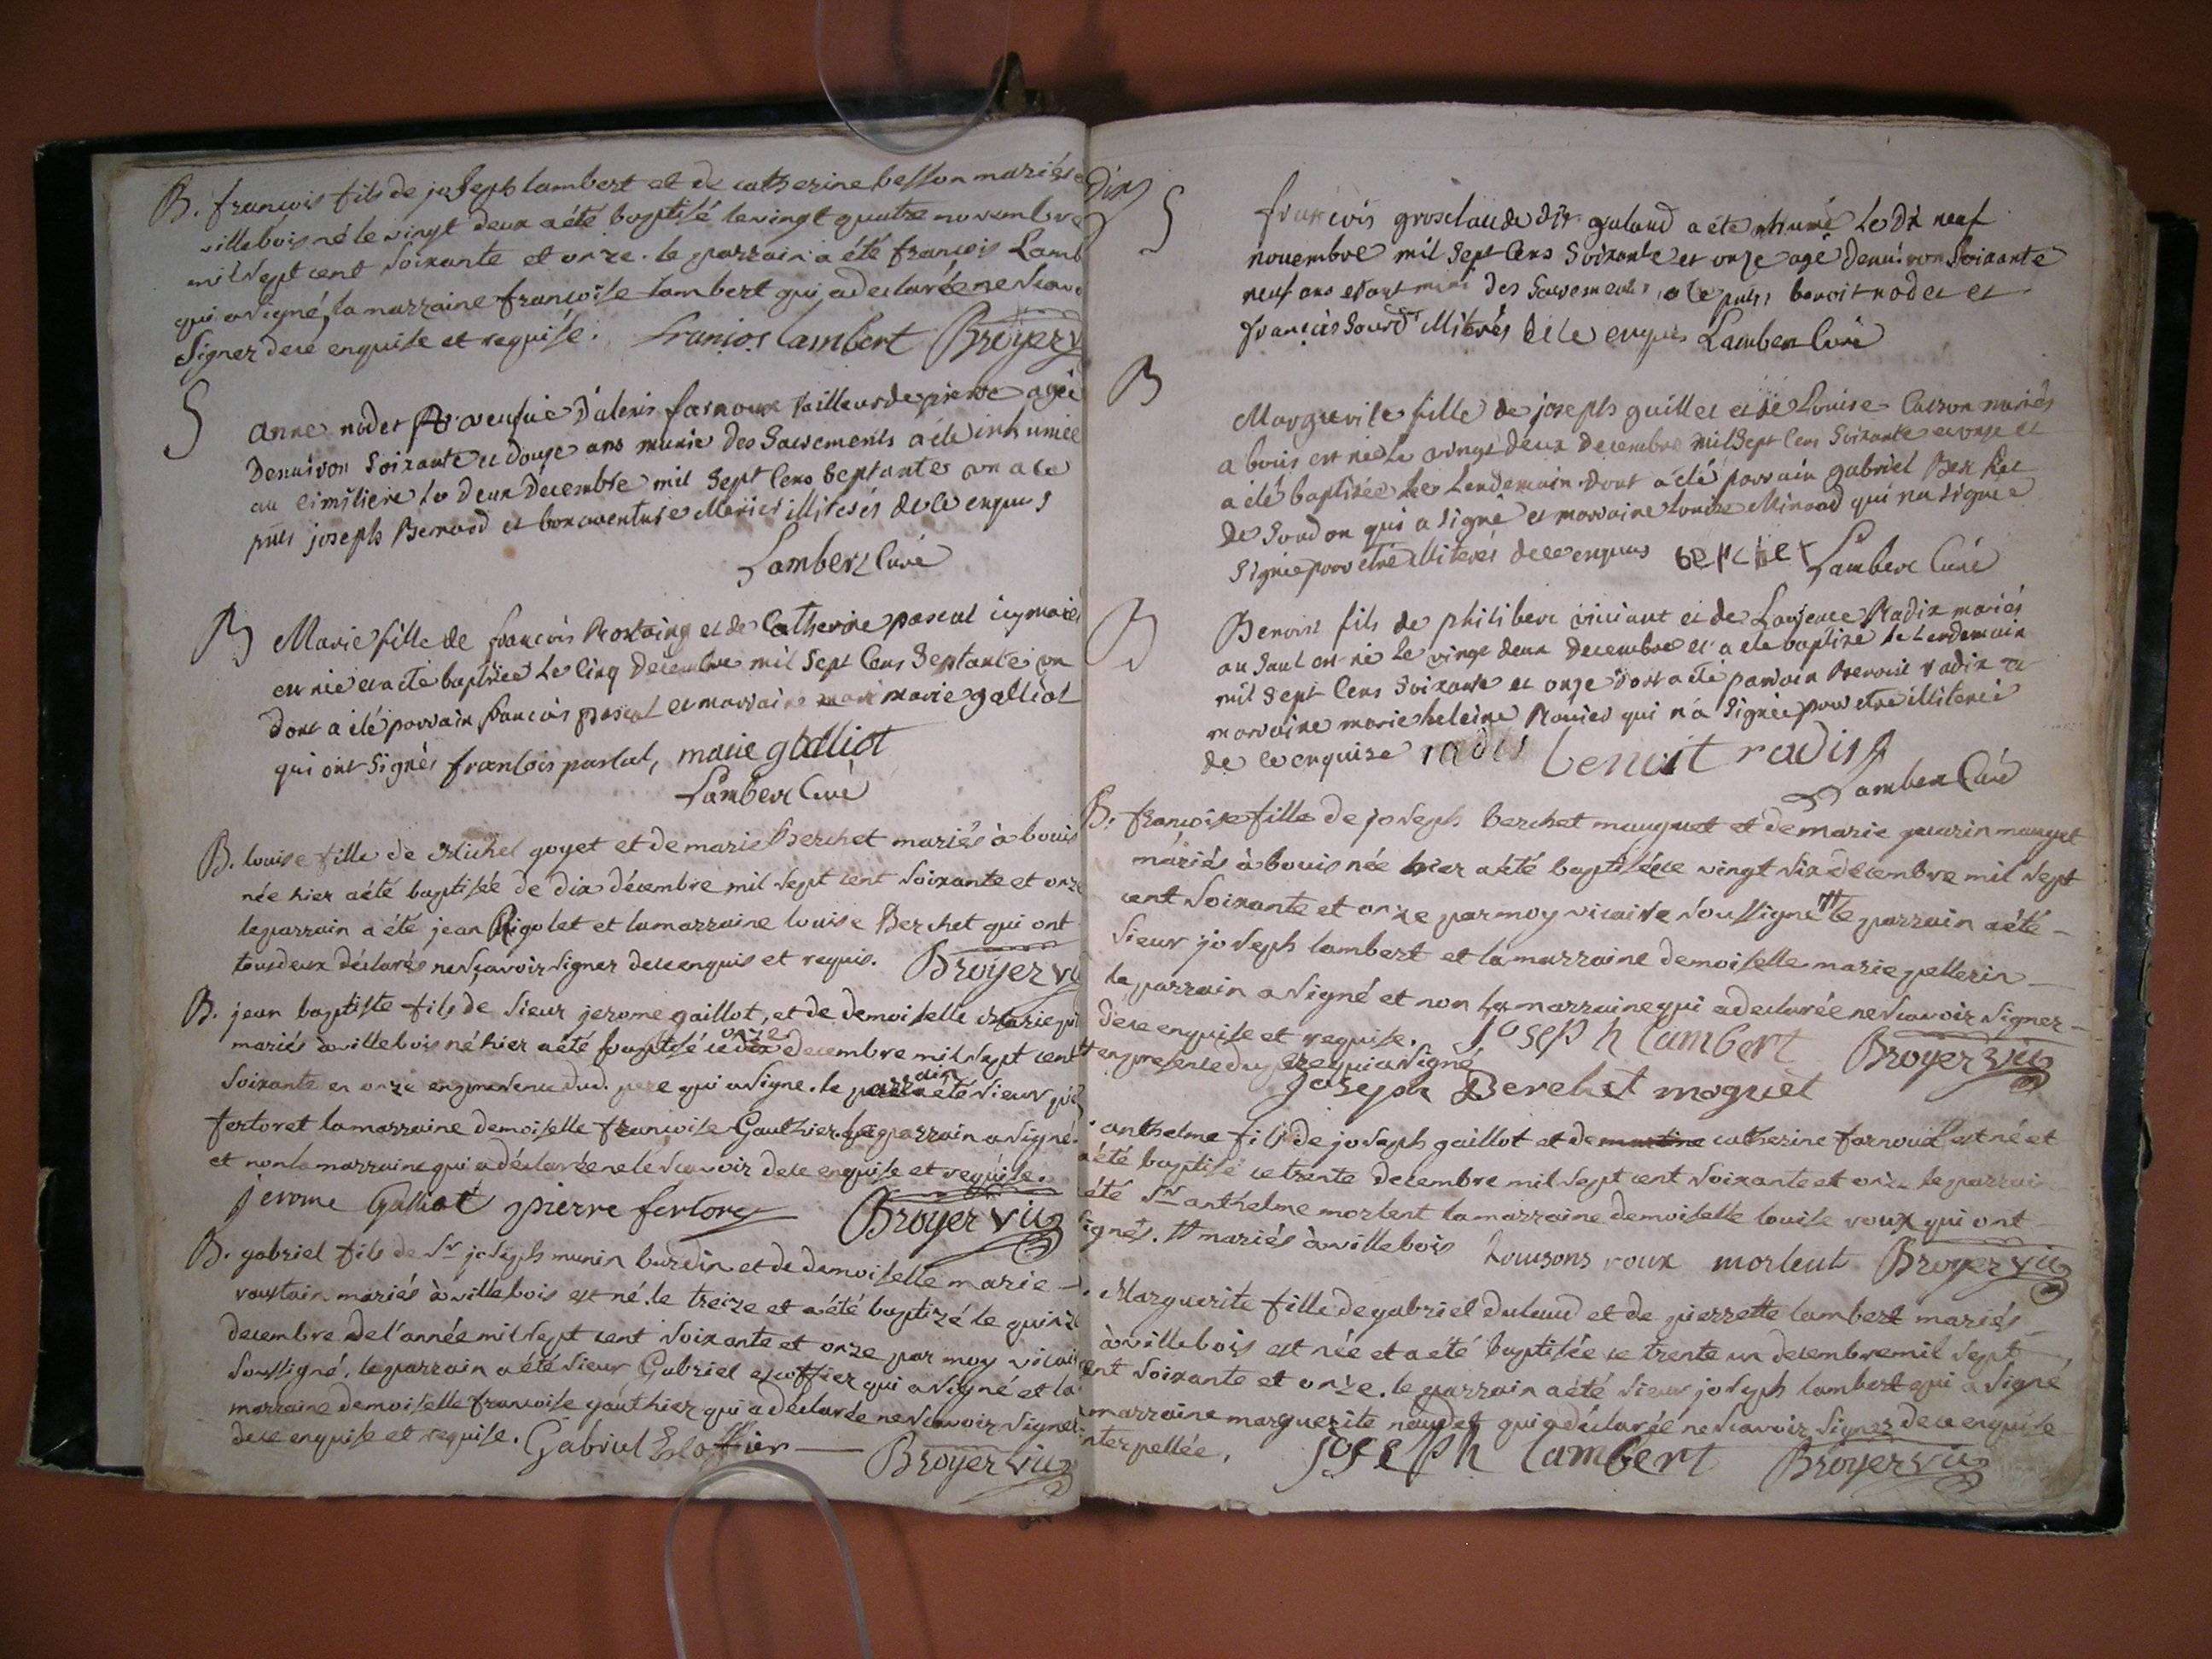 B. francois fils de joseph lambert et de catherine besson mariés
villebois né le vingt deux a été baptisé le vingt quatre novembre
mil sept cent soixante et onze. le parrain a été françois Lamb
qui a signé, la marraine françoise lambert qui a declarée ne scavo
signer dece enquise et requise. franios lambert Broyer v
S
anne nodet veufue d'alexis farnoux tailleur de pierre agée
denuiron soixante et douze ans munie des sacrements a été inhumée
au cimstiere le deux decembre mil sept cens septante un a ce
pnts joseph Bernard et bonaventure illiterés de ce enquis
Lambert Curé
B Marie fille de francois Rostaing et de Catherine pascal icy mariés
est née et a été baptisée le cinq decembre mil sept cens septante un
dont a été parrain francois pascal et marraine marie galliot
qui ont signés franƈois pascal, marie galliot
Lambert Curé
B. louise fille de Michel goyet et de marie Berchet mariés à bouis
née hier a été baptisée de dix décembre mil sept cent soixante et onze
le parrain a été jean Rigolet et la marraine louise Berchet qui ont
tous deux déclarés ne scavoir signer dece enquis et requis. Broyer vic
B. jean baptiste fils de sieur jerome gaillot, et de demoiselle Marie
mariés à villebois né hier a été baptisé ce dix onze decembre mil sept cent
soixante en onze en presence dud. pere qui a signe. le parrain a été sieur
fertoret la marraine demoiselle francoise Gauthier. le parrain a signé.
et non la marraine qui a déclarée ne le scavoir dece enquise et requise.
jerome Galliot pierre fertoret Broyer vic
B. gabriel fils de Sr joseph munin burdin et de demoiselle marie
roustain mariés à villebois est né. le treize et a été baptizé le quinze
decembre de l'année mil sept cent soixante et onze par moy vicair
soussigné. le parrain a été sieur Gabriel escoffier qui a signé et la
marraine demoiselle francoise gauthier qui a declarée ne scavoir signer
dece enquise et requise. Gabriel Escoffier Broyer vic
S
françois grosclaude dit galand a été inhumé le dix neuf
novembre mil sept cens soixante et onze agé denuiron soixante
neuf ans etant muni des sacrements, a ce pnts benoit nodet et
francois sourd illiterés de ce enquis Lambert Curé
B
Marguerite fille de joseph guillet et de Louise mariés
a bouis est née le vingt deux decembre mil sept cens soixante et onze et
a été baptisée le lendemain dont a été parrain gabriel Berchet
de soudon qui a signé et marraine Louise Minard qui na signée
signée pour etre illiterés de ce enquis berchet Lambert Curé
B
Benoist fils de philibert viviant et de Laurence Radix mariés
au saut est né le vingt deux decembre et a ete baptisé le lendemain
mil sept cens soixante et onze dont a été parrain Benoist radix et
marraine marie heleine qui n'a signée pour etre illiterée
de ce enquise radis benoit radis
Lambert Curé
B. francoise fille de joseph berchet mauguet et de marie guarin mauget
mariés à bouis née hier a été baptisée ce vingt six decembre mil sept
cent soixante et onze par moy vicaire soussigné # le parrain a été
sieur joseph lambert et la marraine demoiselle marie pellerin
le parrain a signé et non la marraine qui a declarée ne scavoir signer
dece enquise et requise. Joseph lambert Broyer vic
# en presence du pere qui a signé
Joseph Berchet moguet
anthelme fils de joseph gaillot et de catherine farnoux est né et
a été baptisé ce trente decembre mil sept cent soixante et onze le parrain
été Sr anthelme morlent la marraine demoiselle louise roux qui ont
signés. # mariés à villebois Louisons roux morlent Broyer vic
Marguerite fille de gabriel dulaud et de pierrette lambert mariés
à villebois est née et a été baptisée ce trente un decembre mil sept
cent soixante et onze. le parrain a été sieur joseph lambert qui a signé
marraine marguerite naudet qui a déclarée ne scavoir signer dece enquise
nterpellée. joseph lambert Broyer vic